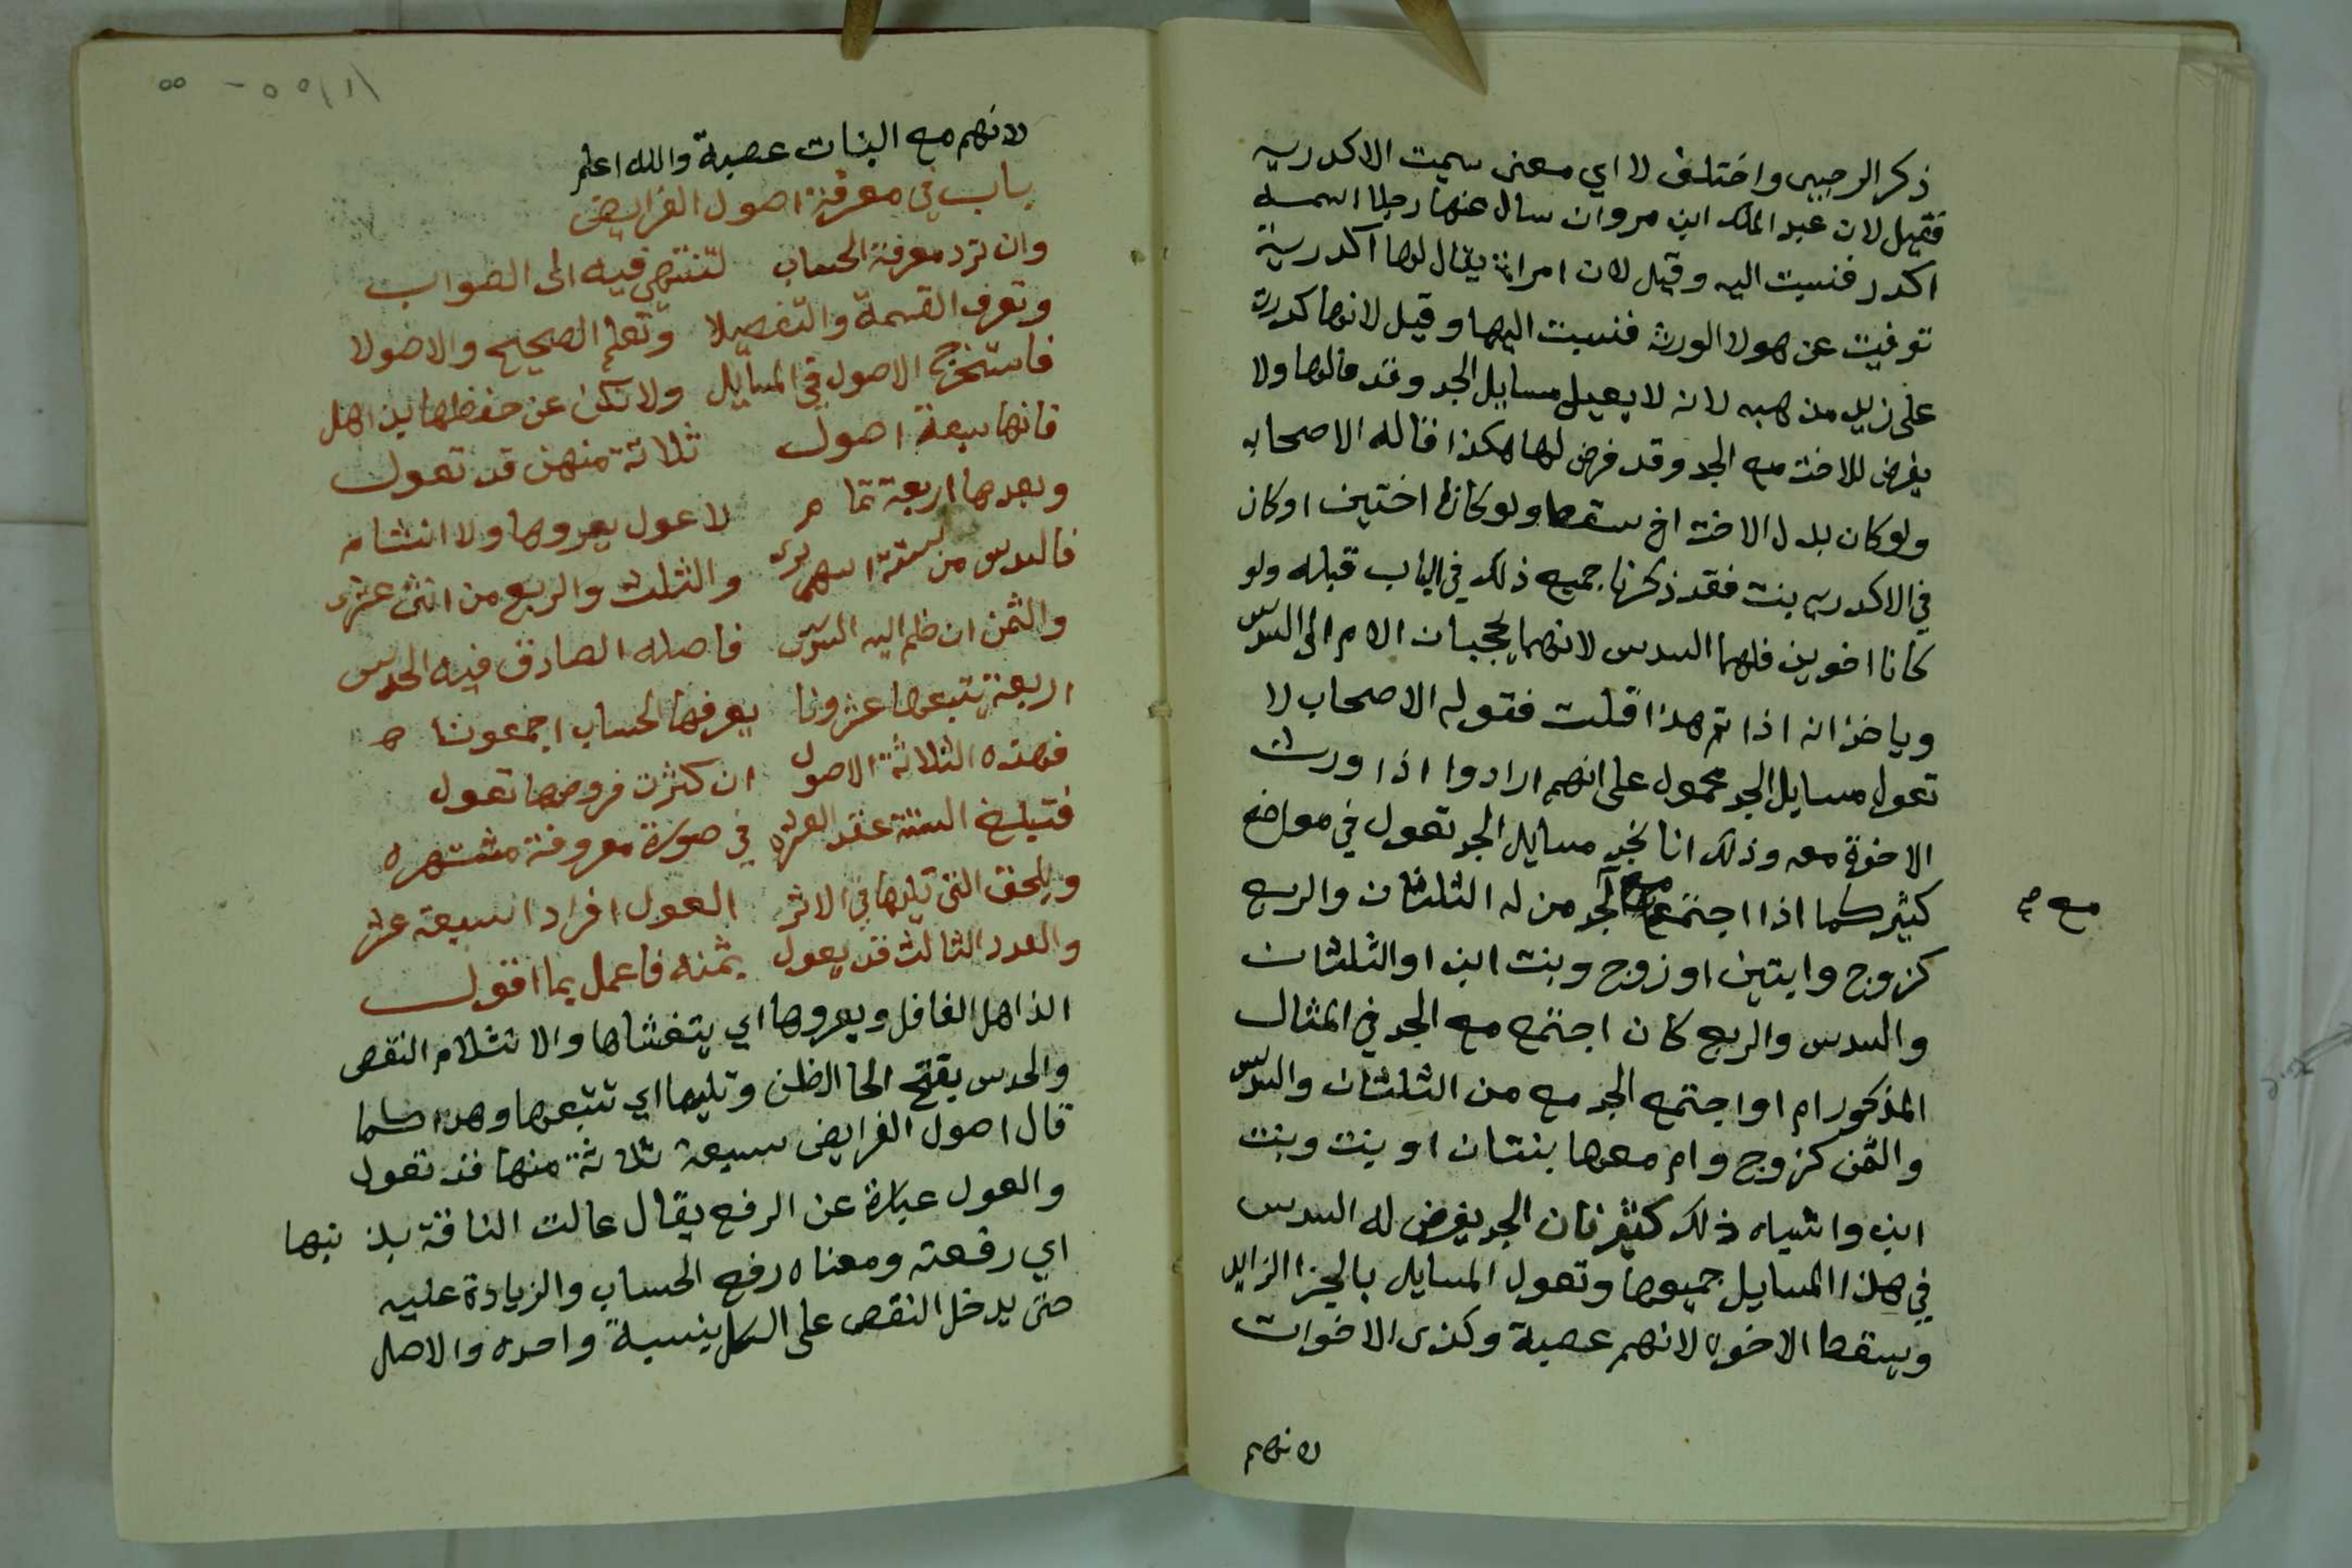 ذكر الرحبي واختلف لا اي معنى سميت الاكدريه
فقيل لان عبد الملك ابن مروان سال عنها رجلا اسمه
اكدر فنسبت اليه وقيل لان امراة يقال لها اكدرية
توفيت عن هولا الورثه فنسبت اليها وقيل لانها كدرت
على زيد مذهبه لانه لا يعيل مسايل الجد وقد عالها ولا
يفرض للاخت مع الجد وقد فرض لها هكذا قاله الاصحاب
ولو كان بدل الاخت اخ سقط ولو كانا اختين او كان
في الاكدريه بنت فقد ذكرنا جميع ذلك في الباب قبله ولو
كانا اخوين فلهما السدس لانهما يحجبان الام الى السدس
وياخذانه اذا تم هذا قلت فقوله الاصحاب لا
تعول مسايل الجد محمول على انهم ارادوا اذا ورث
الاخوة معه وذلك انا نجد مسايل الجد تعول في مواضع
كثير كما اذا اجتمع مع الجد من له الثلثان والربع
مع صح
كزوج وابنتين او زوج وبنت وبنت ابن او الثلثان
والسدس والربع كان اجتمع مع الجد في المثال
المذكور ام او اجتمع الجد مع من الثلثان والسدس
والثمن كزوج وام معها بنتان او بنت وبنت
ابن واشباه ذلك كثير فان الجد يفرض له السدس
في هذا المسايل جميعها وتعول المسايل بالجزا الزايد
ويسقط الاخوه لانهم عصبة وكذى الاخوات
لانهم
لانهم مع البنات عصبة والله اعلم
باب في معرفة اصول الفرايض
وان ترد معرفة الحساب لتنتهي فيه الى الصواب
وتعرف القسمة والتفصيلا وتعلم الصحيح والاصولا
فاستخرج الاصول في المسايل ولا تكن عن حفظها بذاهل
فانها سبعة اصول ثلاثة منهن قد تعول
وبعدها اربعة تمام لا عول يعروها ولا انثلام
فالسدس من ستة اسهم يرى والثلث والربع من اثنى عشرى
والثمن ان ظم اليه السدس فاصله الصادق فيه الحدس
اربعة يتبعها عشرونا يعرفها الحساب اجمعونا
فهذه الثلاثة الاصول ان كثرت فروضها تعول
فتبلغ الستة عقد العشره في صورة معروفة مشتهره
ويلحق التي تليها في الاثر العول افرادا سبعة عشر
والعدد الثالث قد يعول بثمنه فاعمل بما اقول
الذاهل الغافل ويعروها اي يتغشاها والانثلام النقص
والحدس بفتح الحا الظن وتليها اي تتبعها وهذا كما
قال اصول الفرايض سبعة ثلاثة منها قد تعول
والعول عبارة عن الرفع يقال عالت الناقة بذنبها
اي رفعته ومعناه رفع الحساب والزيادة عليه
حتى يدخل النقص على الكل بنسبة واحده والاصل